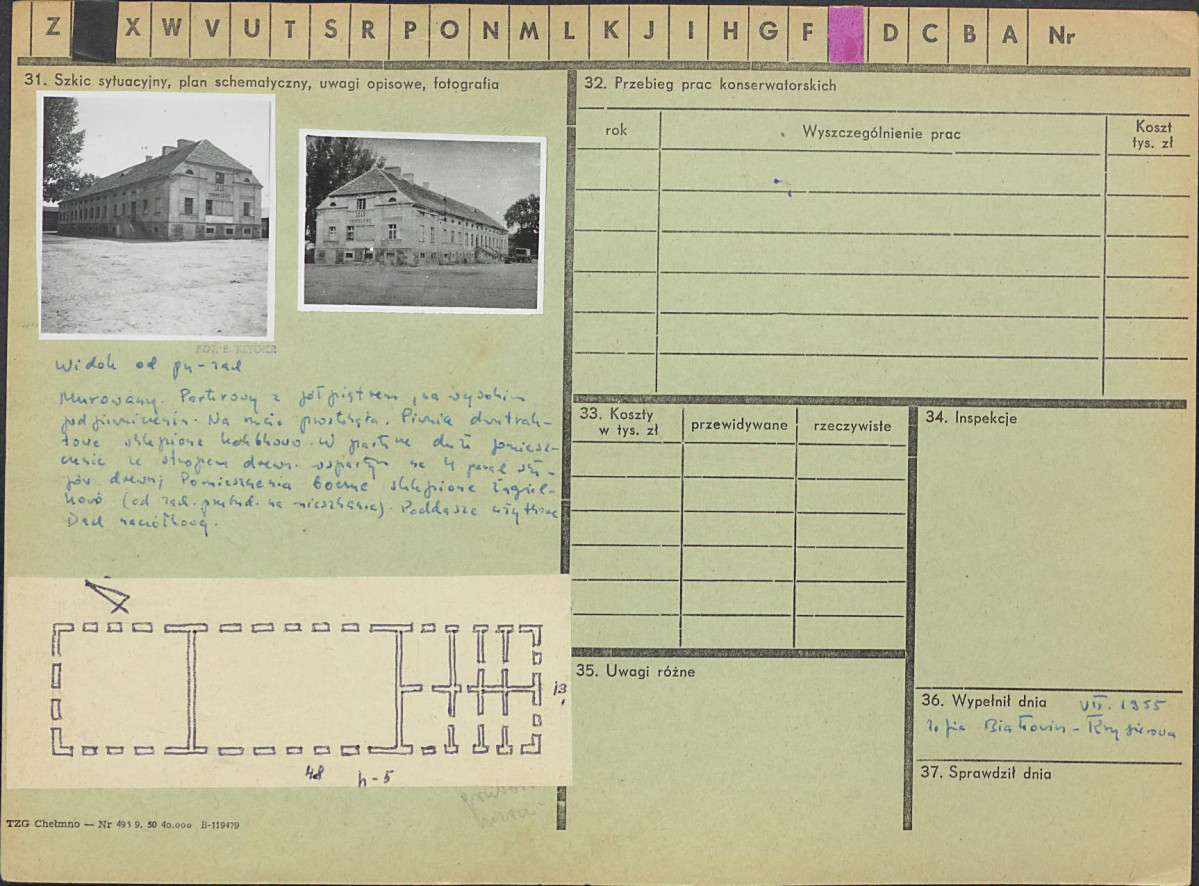 Z X W V U T S R P O N M L K J I H G F D C B A Nr
31. Szkic sytuacyjny, plan schematyczny, uwagi opisowe, fotografia
FOT. E. KEYCHER
Widok od pn-zad
Murowany. Parterowy z półpiętrem, na wysokim
podpiwniczeniu. Na rzucie prostokąta. Piwnice dwutrak-
towe sklepione kolebkowo. W parterze duże pomiesz-
czenie ze stropem drewn. wspartym na 4 parach słu-
pów drewn. Pomieszczenia boczne sklepione żagiel-
kowo (od zad. przebud. na mieszkania). Poddasze użytkowe
Dach naczółkowy.
13
48 h-5
TZG Chełmno — Nr 493 9. 50 40.000 B-119479
32. Przebieg prac konserwatorskich
rok
Wyszczególnienie prac
Koszt
tys. zł
33. Koszty
w tys. zł
przewidywane
rzeczywiste
34. Inspekcje
35. Uwagi różne
36. Wypełnił dnia VII. 1955
Zofia Białłowicz-Krygierowa
37. Sprawdził dnia